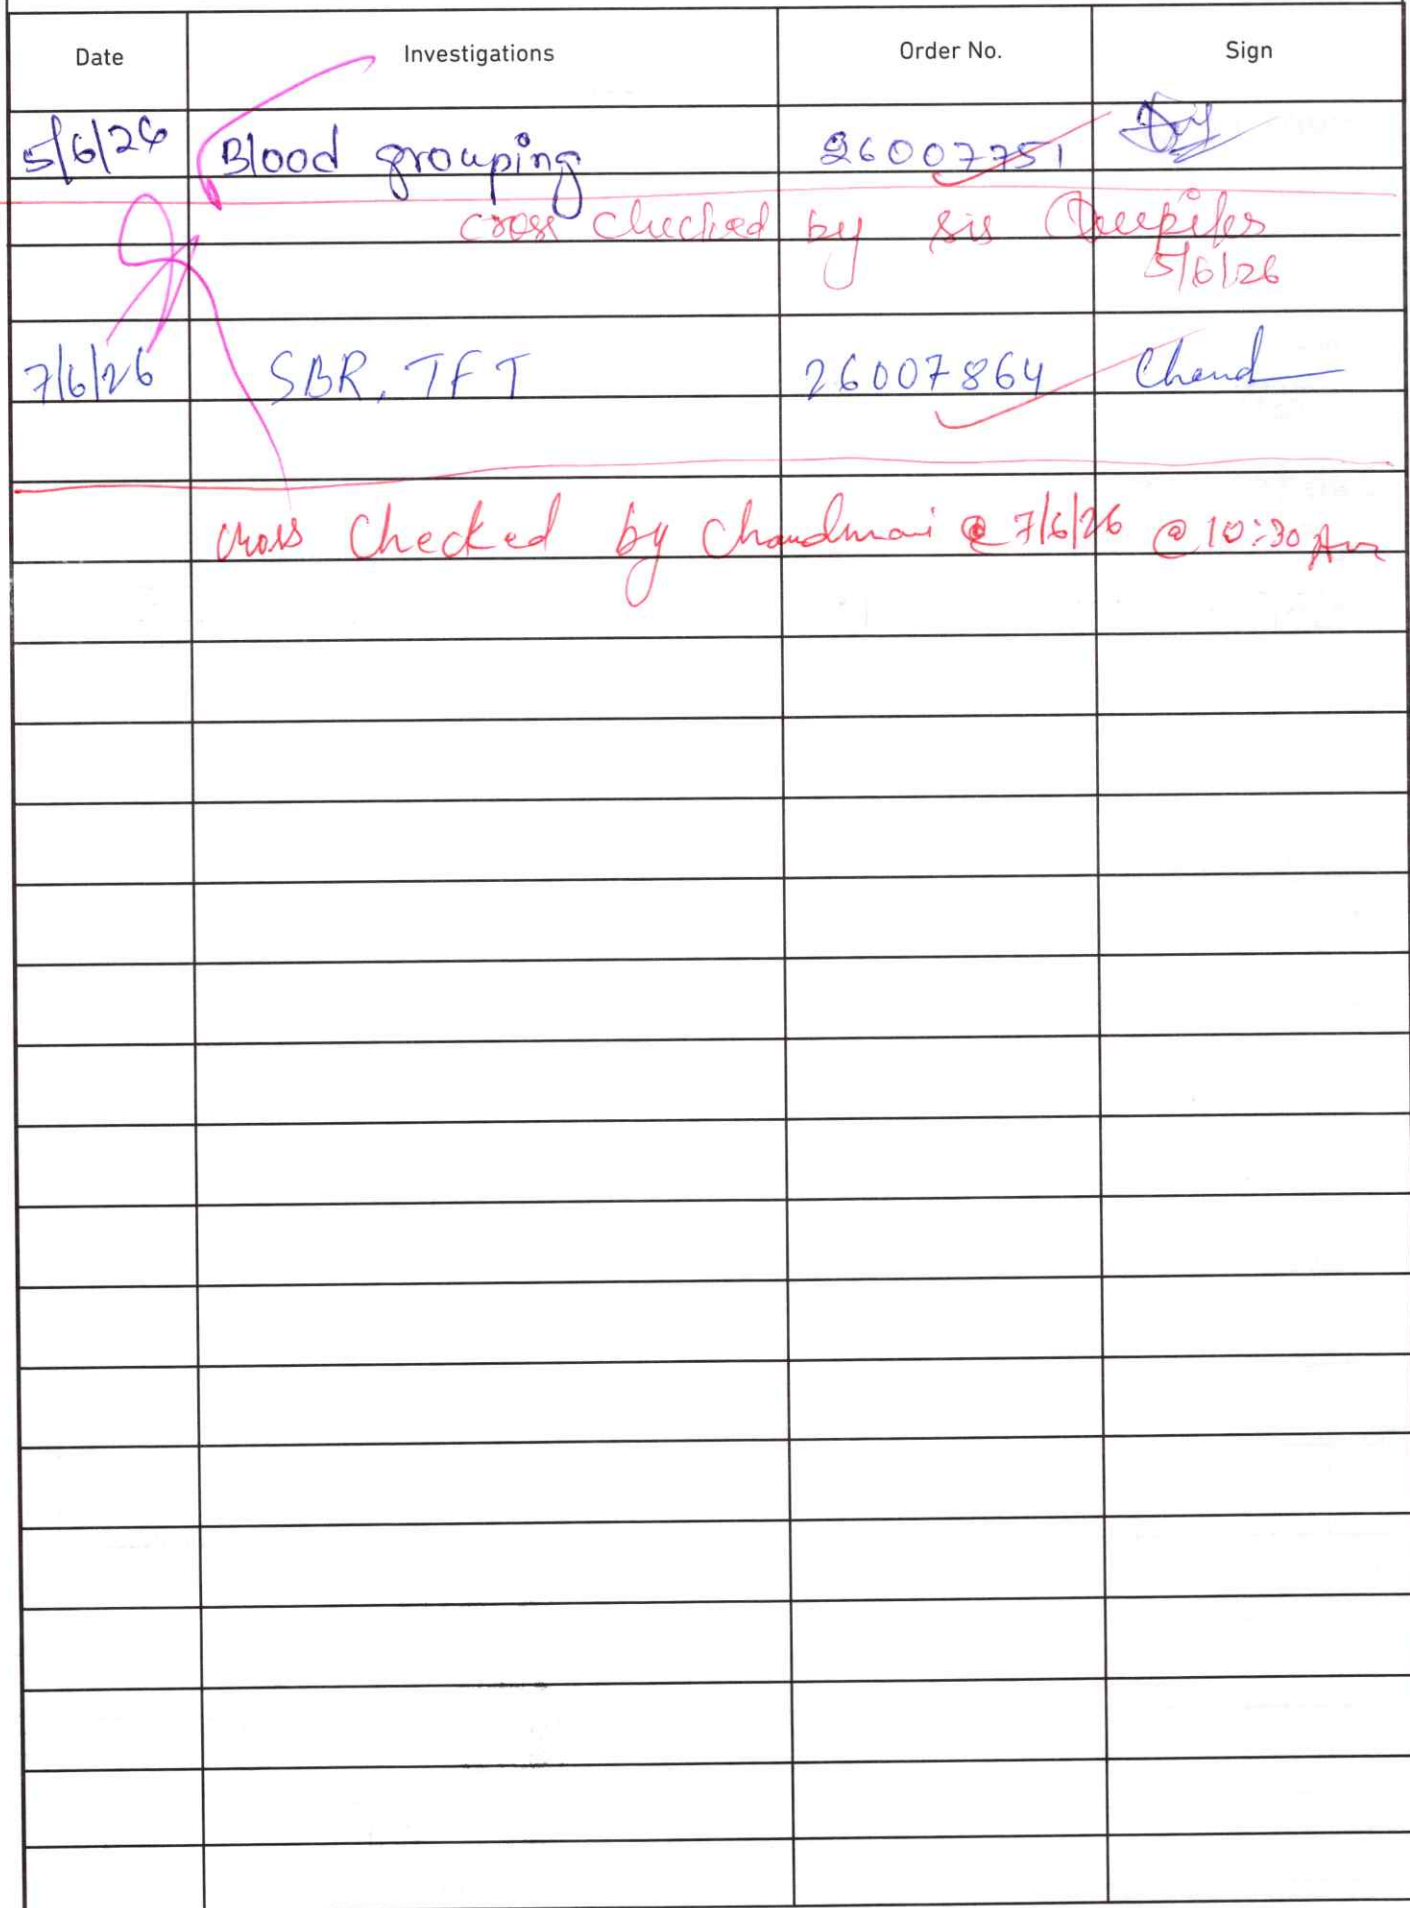 Date Investigations Order No. Sign
5/6/26 Blood grouping 26007751
cross checked by sis Deepika
5/6/26
7/6/26 SBR, TFT 26007864 Chand
cross checked by @ 7/6/26 @ 10:30 Am